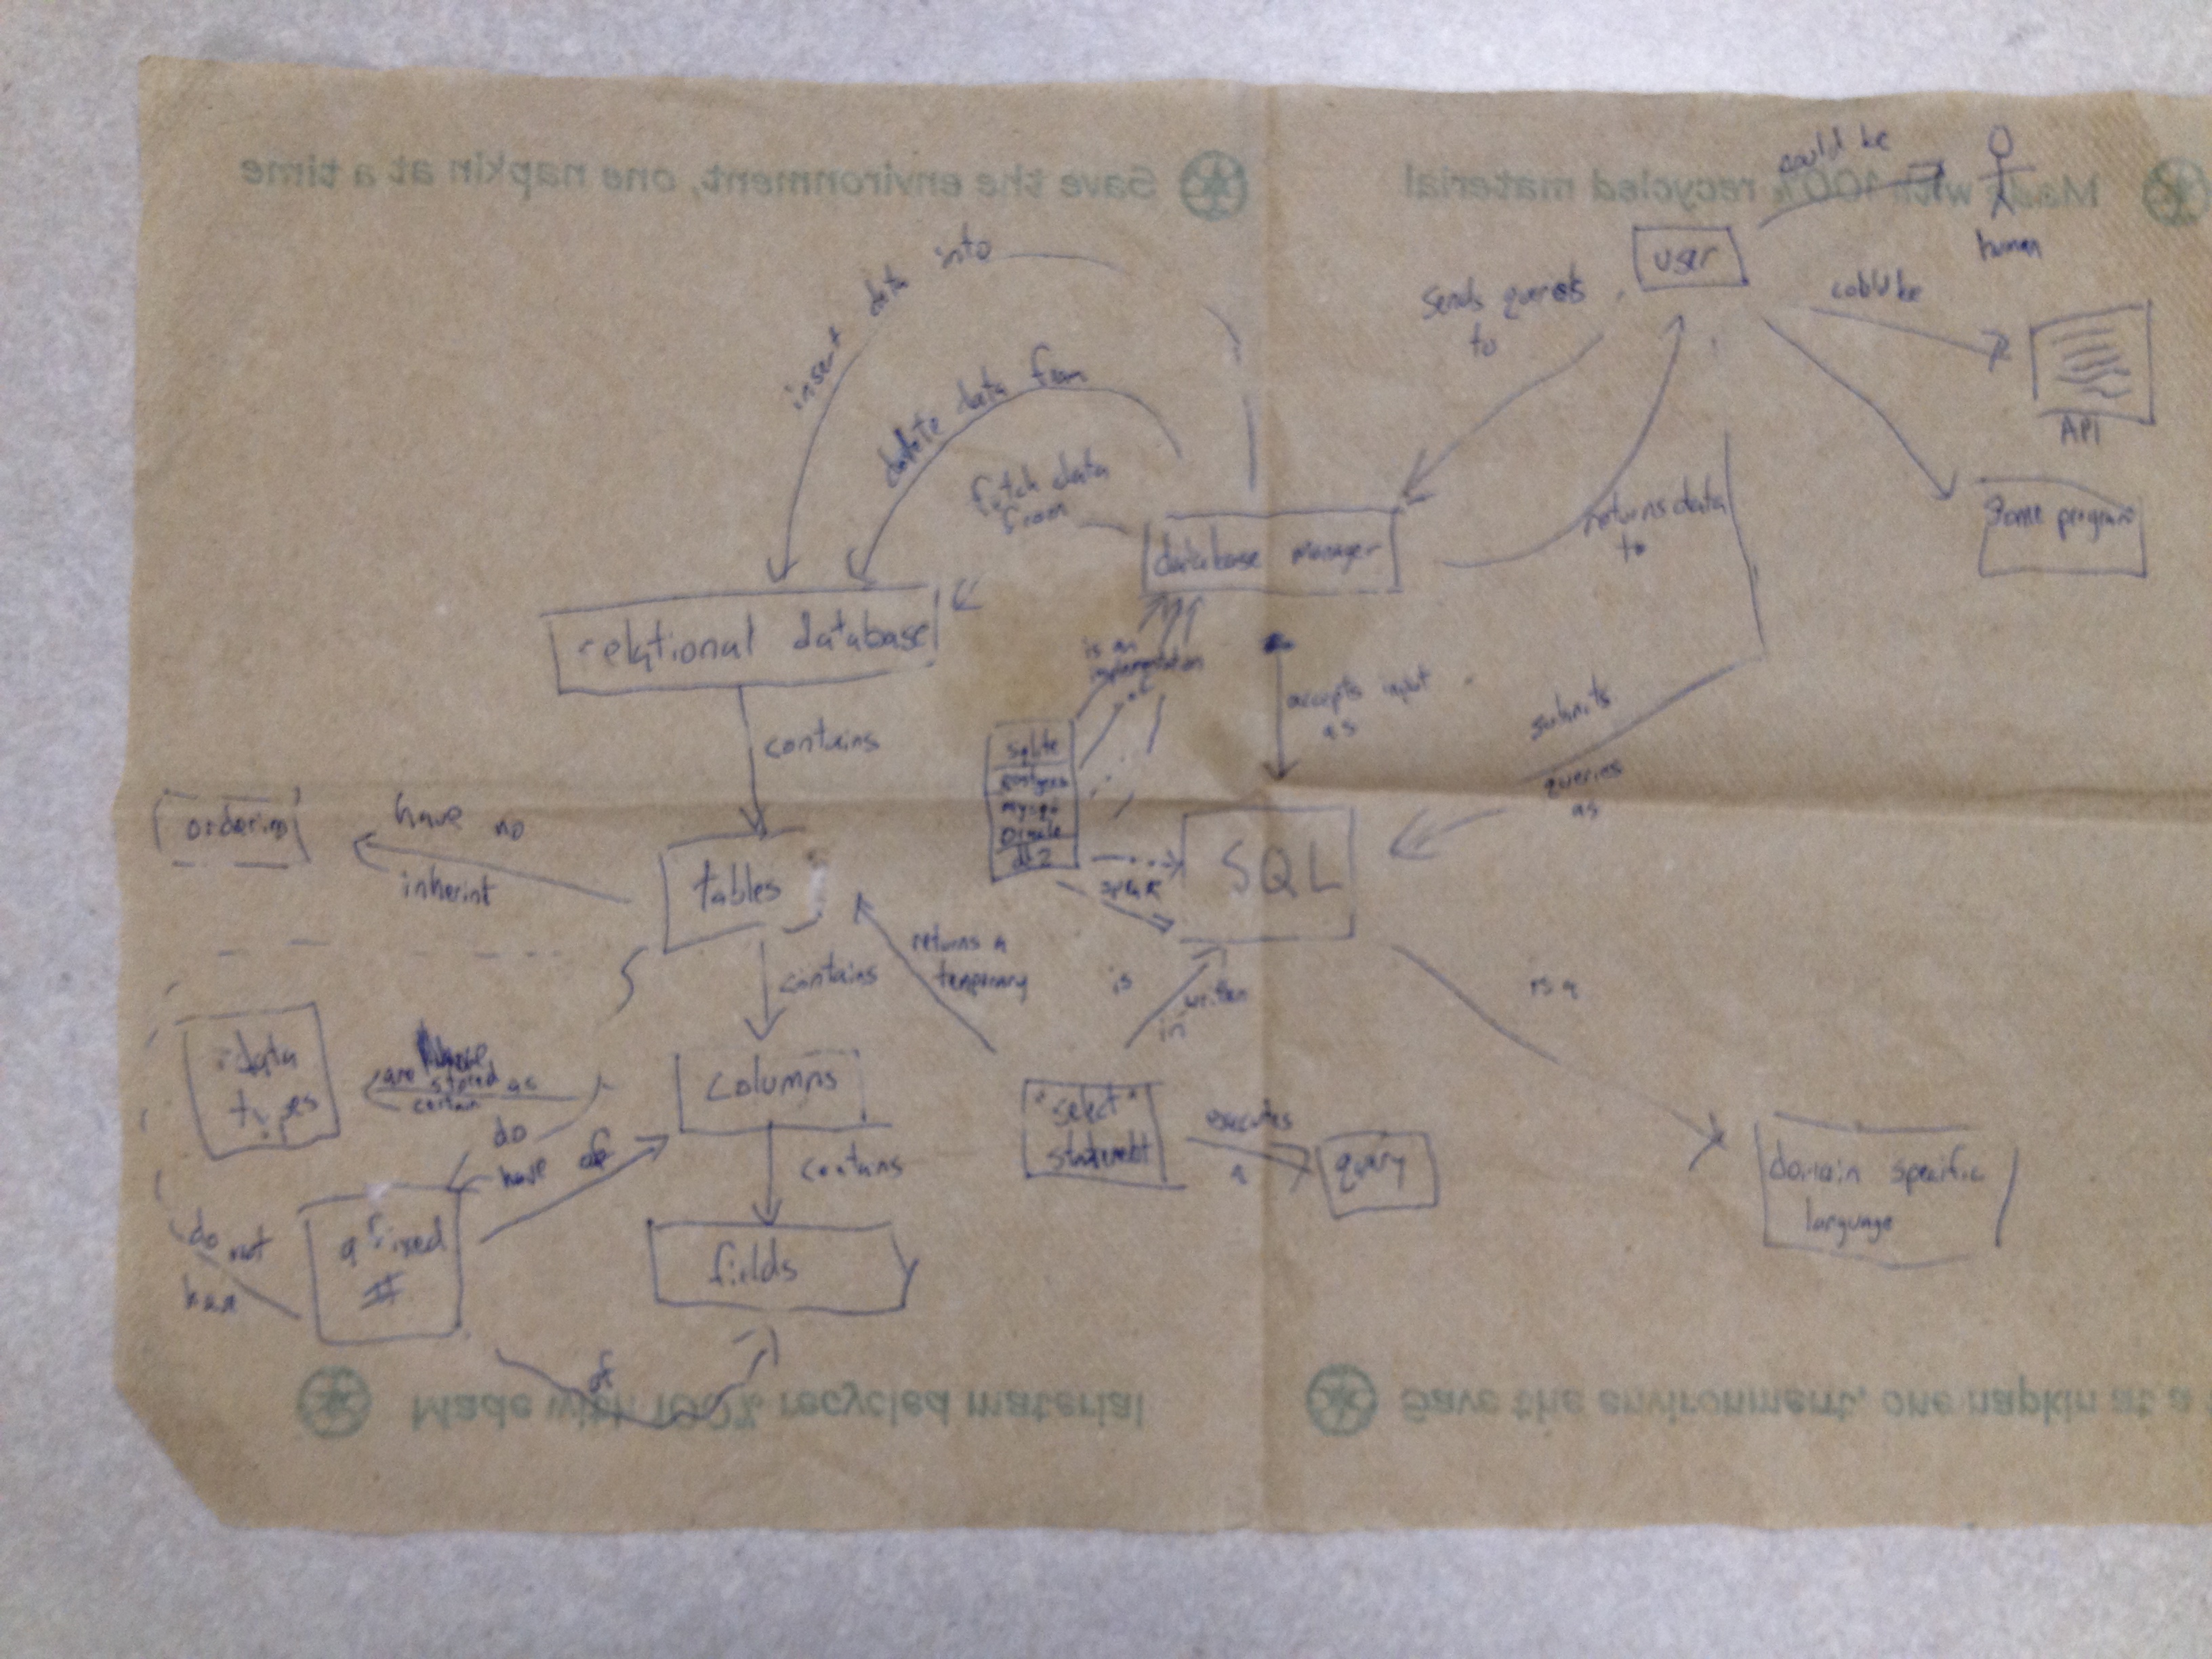 Save the environment, one napkin at a time
Made with 100% recycled material
could be
human
user
could be
API
some program
sends queries
to
insert data into
delete data from
fetch data
from
database manager
returns data
to
relational database
is an
implementation
of
accepts input
as
submits
queries
as
contains
sqlite
postgres
mysql
oracle
db2
speak
SQL
ordering
have no
inherint
tables
contains
returns a
temporary
is
written
in
is a
data
types
are
stored as
certain
columns
do
have
of
contains
"select"
statement
executes
a
query
domain specific
language
a fixed
#
do not
have
fields
of
Made with 100% recycled material
Save the environment, one napkin at a